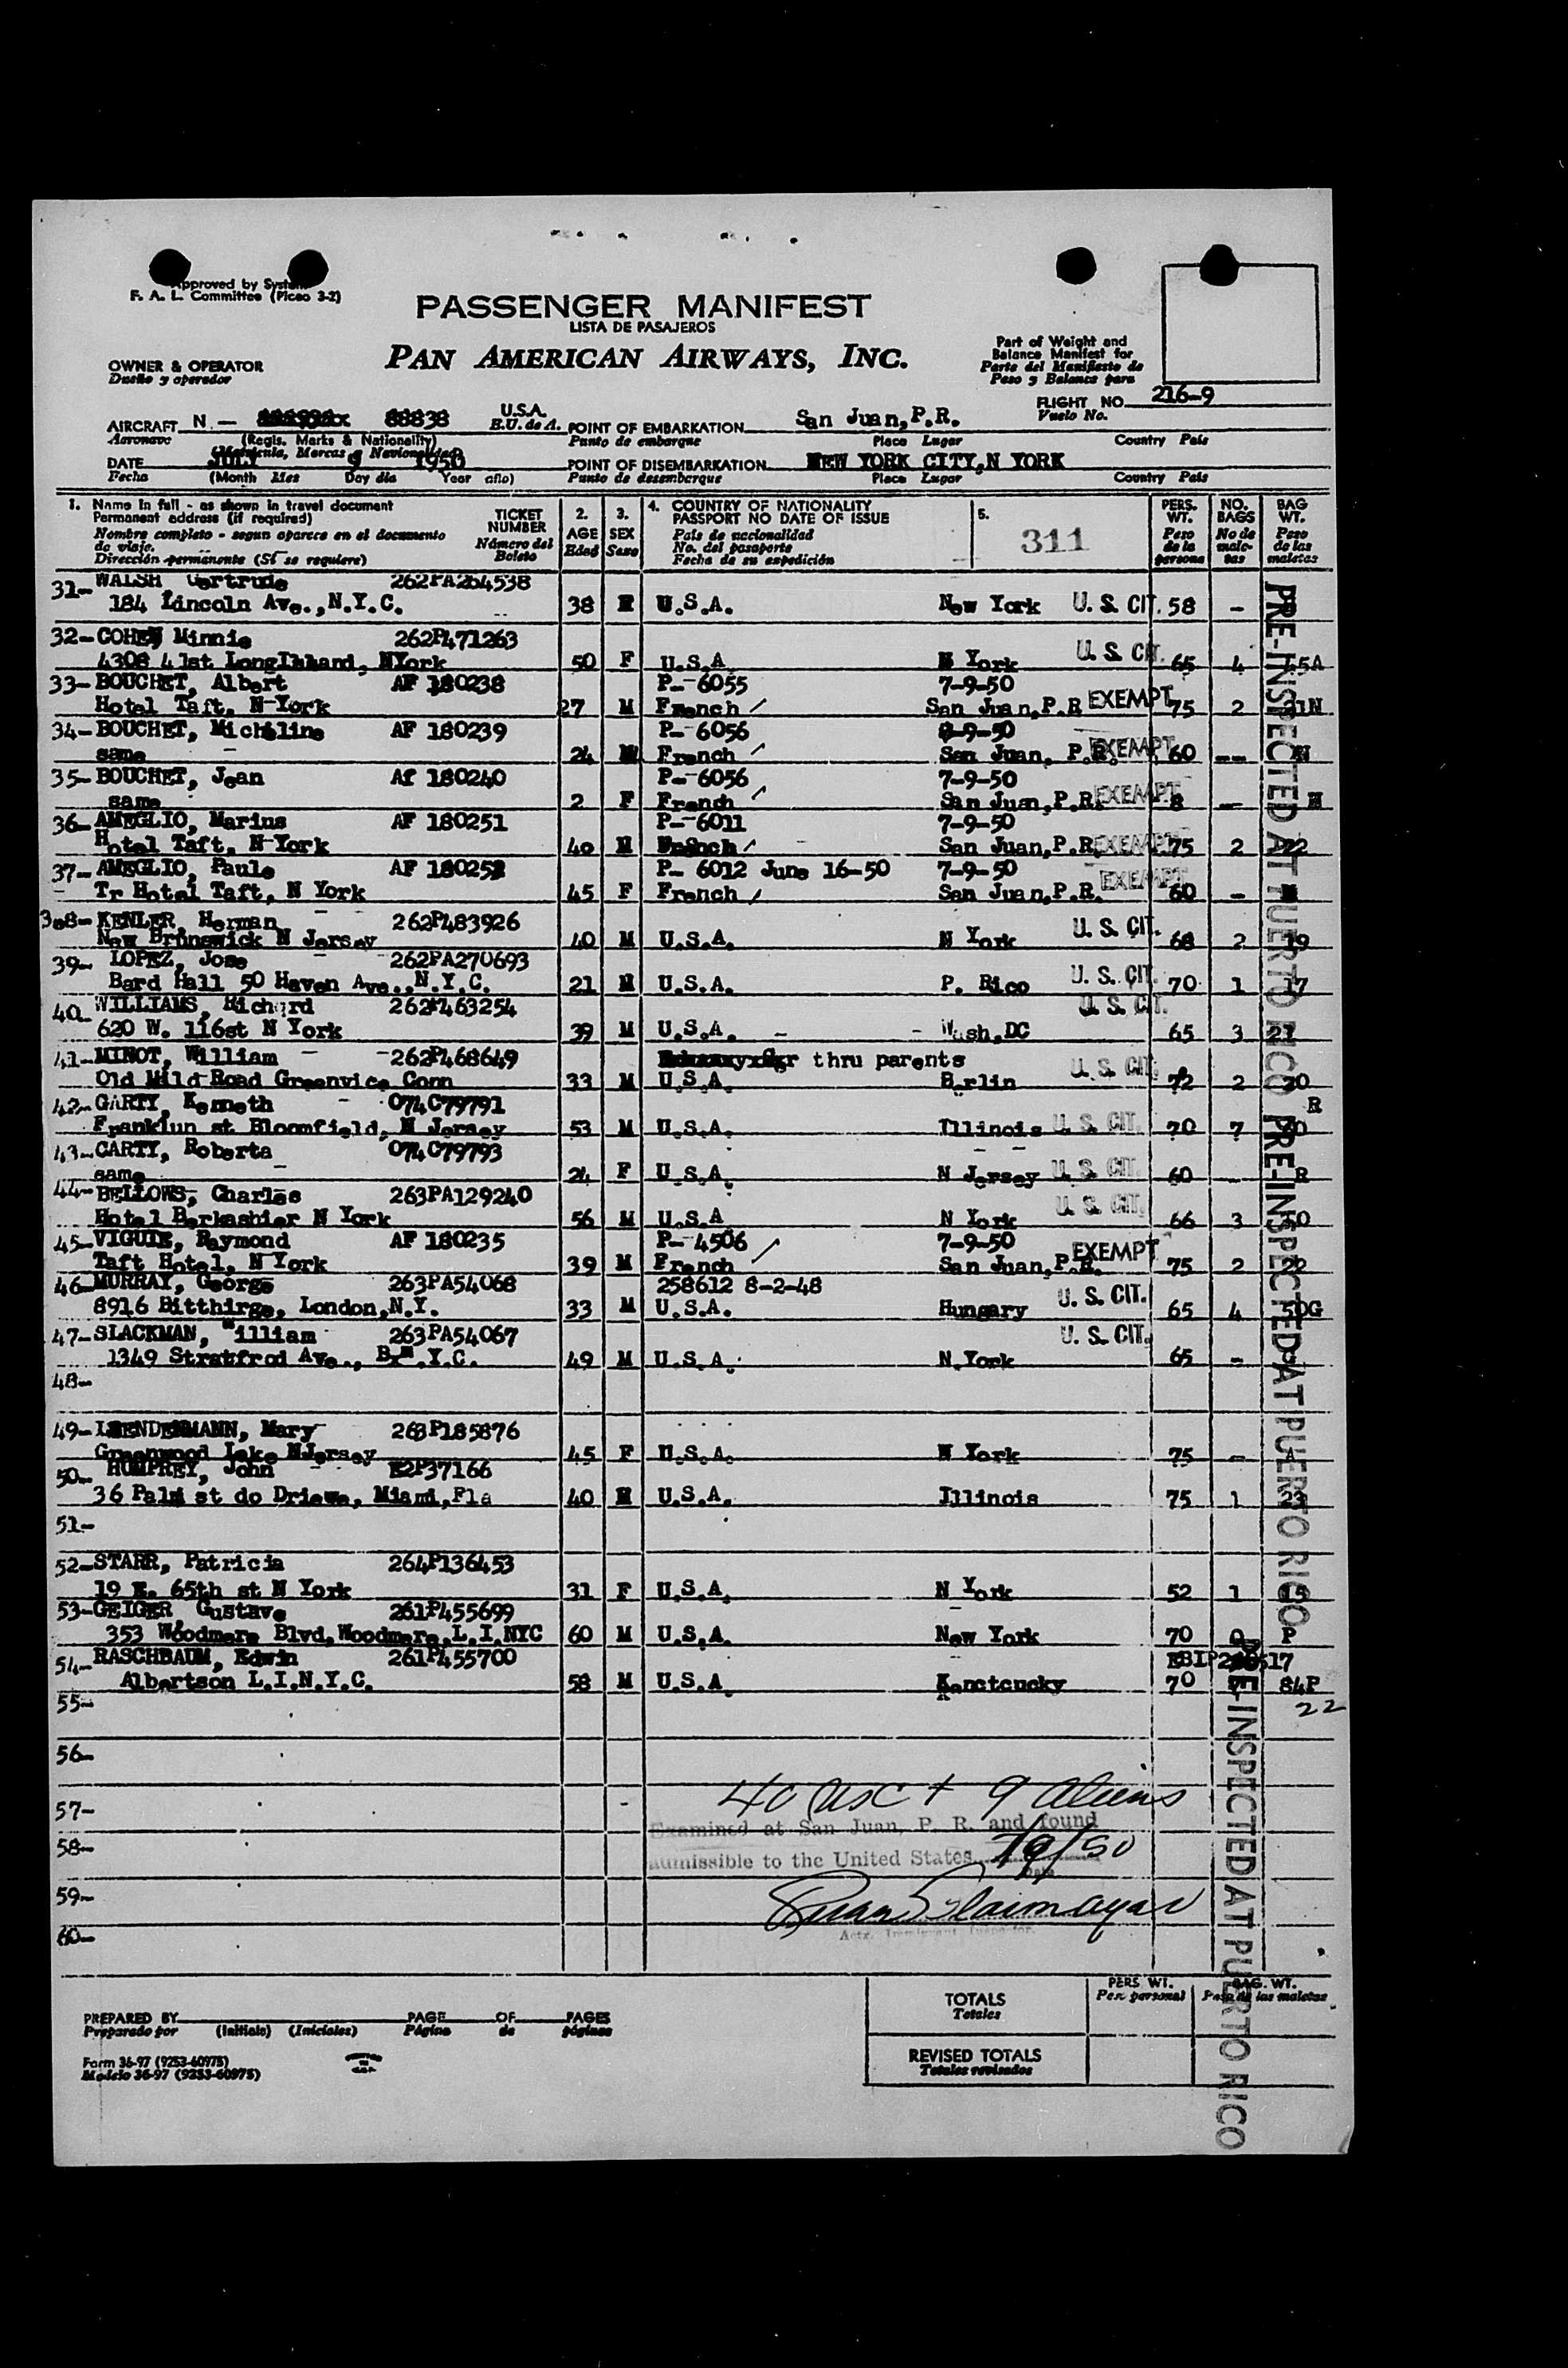 Approved by System
F. A. L. Committee (Picao 3-2)
PASSENGER MANIFEST
LISTA DE PASAJEROS
PAN AMERICAN AIRWAYS, INC.
OWNER & OPERATOR
Dueño y operador
Part of Weight and
Balance Manifest for
Parte del Manifiesto de
Peso y Balance para
FLIGHT NO. 216-9
Vuelo No.
AIRCRAFT N — 88838 U.S.A.
E.U. de A.
Aeronave (Regis. Marks & Nationality)
(Matrícula, Marcas y Nacionalidad)
POINT OF EMBARKATION San Juan,P.R.
Punto de embarque Place Lugar Country País
DATE JULY 9 1950
Fecha (Month Mes Day día Year año)
POINT OF DISEMBARKATION NEW YORK CITY,N YORK
Punto de desembarque Place Lugar Country País
1. Name in full - as shown in travel document
Permanent address (if required)
Nombre completo - segun aparece en el documento
de viaje.
Dirección permanente (Si se requiere)
TICKET
NUMBER
Número del
Boleto
2.
AGE
Edad
3.
SEX
Sexo
4. COUNTRY OF NATIONALITY
PASSPORT NO DATE OF ISSUE
País de nacionalidad
No. del pasaporte
Fecha de su expedición
5.
311
PERS.
WT.
Peso
de la
persona
NO.
BAGS
No de
male-
tas
BAG
WT.
Peso
de las
maletas
31- WALSH Gertrude 262PA264538
184 Lincoln Ave.,N.Y.C. 38 U.S.A. New York U. S. CIT. 58 -
32- COHEN Minnie 262P471263
4308 41st Long , NYork 50 F U.S.A. N York U. S. CIT. 65 4 45A
33- BOUCHET, Albert AF 180238 P- 6055 7-9-50
Hotel Taft, N York 27 M French San Juan,P.R EXEMPT 75 2 21N
34- BOUCHET, Micheline AF 180239 P- 6056 8-9-50
same 24 French San Juan, P.R. EXEMPT 60 -- N
35- BOUCHET, Jean Af 180240 P- 6056 7-9-50
same 2 F French San Juan,P.R. EXEMPT 8 -
36- AMEGLIO, Marius AF 180251 P- 6011 7-9-50
Hotel Taft, N York 40 M French San Juan,P.R. EXEMPT 75 2 22
37- AMEGLIO, Paule AF 180252 P- 6012 June 16-50 7-9-50
Tr Hotel Taft, N York 45 F French San Juan,P.R. EXEMPT 60 -
38- KENLER, Herman 262P483926
New Brunswick N Jersey 40 M U.S.A. N York U. S. CIT. 68 2 19
39- LOPEZ, Jose 262PA270693
Bard Hall 50 Haven Ave., N.Y.C. 21 M U.S.A. P. Rico U. S. CIT. 70 1 17
40- WILLIAMS, Richard 262P463254
620 W. 116st N York 39 M U.S.A. - - Wash,DC U. S. CIT. 65 3 21
41- MINOT, William 262P468649 thru parents
Old Mild Road Greenvice Conn 33 M U.S.A. Berlin U. S. CIT. 72 2 20
42- GARTY, Kenneth 074C79791 R
Franklun st Bloomfield, N Jersey 53 M U.S.A. Illinois U. S. CIT. 70 7
43- CARTY, Roberta 074C79793
same 24 F U.S.A. N Jersey U. S. CIT. 60 R
44- BELLOWS, Charles 263PA129240
Hotel Berkashier N York 56 M U.S.A N York U. S. CIT. 66 3 50
45- VIGUIE, Raymond AF 180235 P- 4506 7-9-50
Taft Hotel, N York 39 M French San Juan,P.R. EXEMPT 75 2 22
46- MURRAY, George 263PA54068 258612 8-2-48
8916 Bitthirge, London,N.Y. 33 M U.S.A. Hungary U. S. CIT. 65 4 50G
47- SLACKMAN, William 263PA54067
1349 Stratfrod Ave., Bx N.Y.C. 49 M U.S.A. N.York U. S. CIT. 65 -
48-
49- LENDENMANN, Mary 263P185876
Greenwood Lake NJersey 45 F U.S.A. N York 75 -
50- HUMPREY, John E2P37166
36 Palm st do Driewe, Miami,Fla 40 M U.S.A. Illinois 75 1 23
51-
52- STARR, Patricia 264P136453
19 E. 65th st N York 31 F U.S.A. N York 52 1 15
53- GEIGER, Gustave 261P455699
353 Woodmere Blvd,Woodmere,L.I.NYC 60 M U.S.A. New York 70 P
54- RASCHBAUM, Edwin 261P455700
Albertson L.I.N.Y.C. 58 M U.S.A. Kenctcucky 70 84P
55- 22
56-
57- 40 USC + 9 aliens
58- Examined at San Juan, P. R. and found
admissible to the United States 7/9/50
Date
59-
60- Actg. Immigrant Inspector.
PRE-INSPECTED AT PUERTO RICO
PRE-INSPECTED AT PUERTO RICO
PRE-INSPECTED AT PUERTO RICO
PREPARED BY PAGE OF PAGES
Preparado por (Initials) (Iniciales) Página de páginas
Form 36-97 (9253-60975)
Modelo 36-97 (9253-60975)
TOTALS
Totales
PERS WT.
Pes. personal
BAG. WT.
Peso de las maletas
REVISED TOTALS
Totales revisados